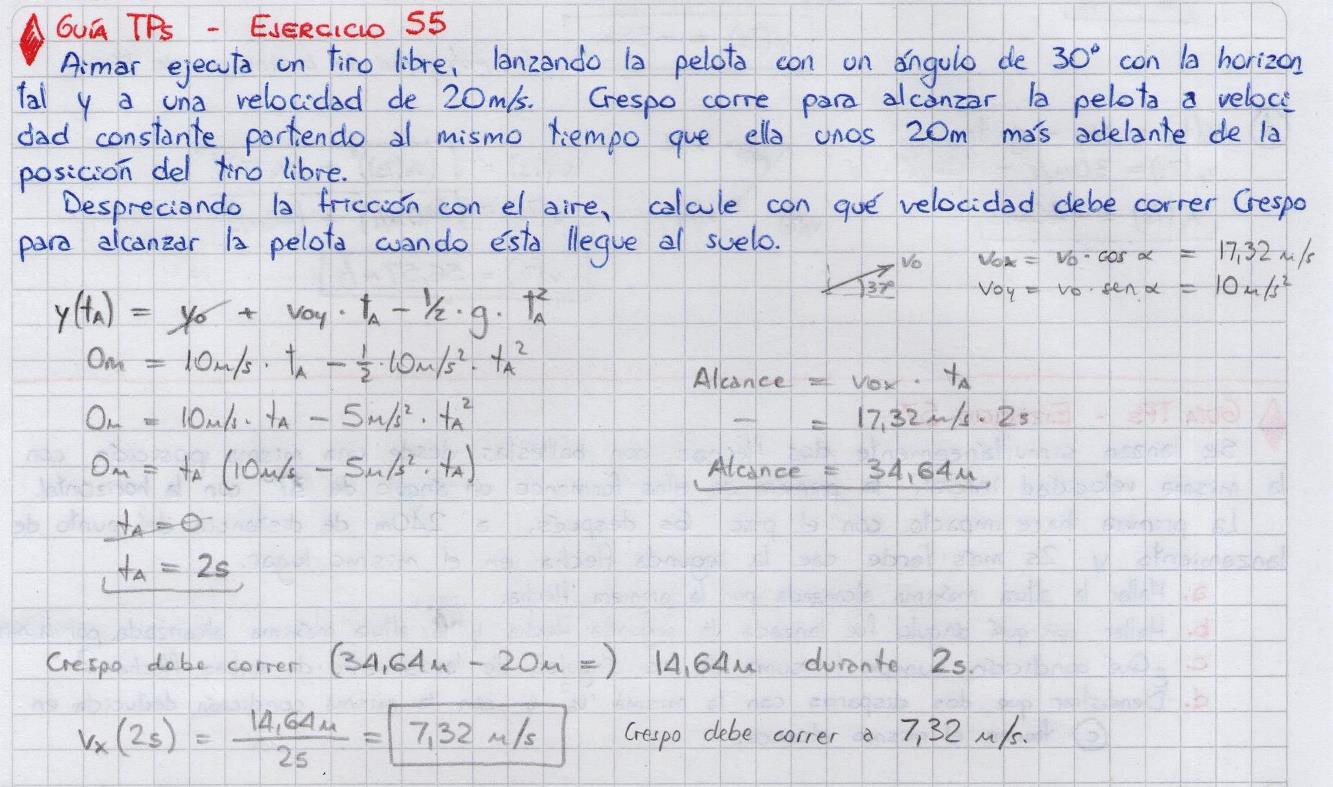 GUÍA TPs - EJERCICIO 55
Aimar ejecuta un tiro libre, lanzando la pelota con un ángulo de 30° con la horizon
tal y a una velocidad de 20m/s. Crespo corre para alcanzar la pelota a veloci
dad constante partiendo al mismo tiempo que ella unos 20m más adelante de la
posición del tiro libre.
Despreciando la fricción con el aire, calcule con qué velocidad debe correr Crespo
para alcanzar la pelota cuando ésta llegue al suelo.
v₀
37°
v₀ₓ = v₀ · cos α = 17,32 m/s
v₀y = v₀ · sen α = 10 m/s²
y(t_A) = y₀ + v₀y · t_A - 1/2 · g · t_A²
0m = 10m/s · t_A - 1/2 · 10m/s² · t_A²
0m = 10m/s · t_A - 5m/s² · t_A²
0m = t_A (10m/s - 5m/s² · t_A)
t_A = 0
t_A = 2s
Alcance = v₀ₓ · t_A
- = 17,32 m/s · 2s
Alcance = 34,64m
Crespo debe correr (34,64m - 20m =) 14,64m durante 2s.
vₓ(2s) = 14,64m / 2s = 7,32 m/s
Crespo debe correr a 7,32 m/s.